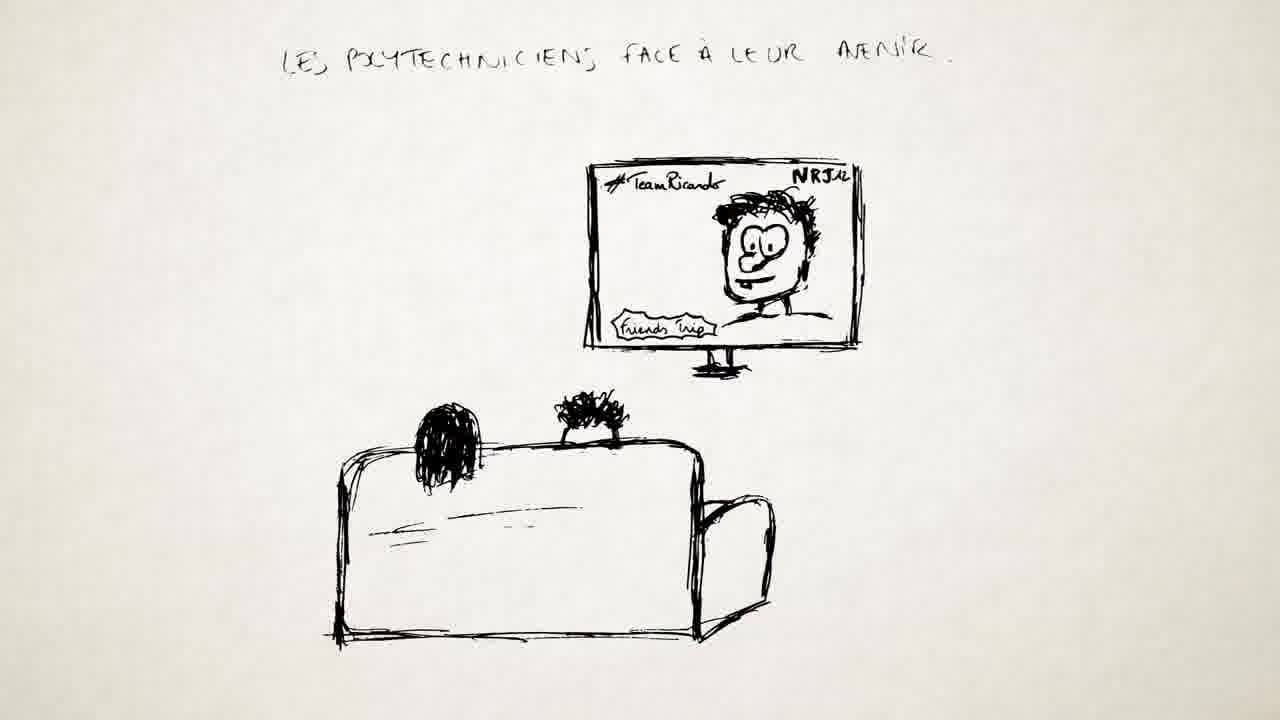 LES POLYTECHNICIENS FACE À LEUR AVENIR.
#TeamRicardo
NRJ12
Friends Trip